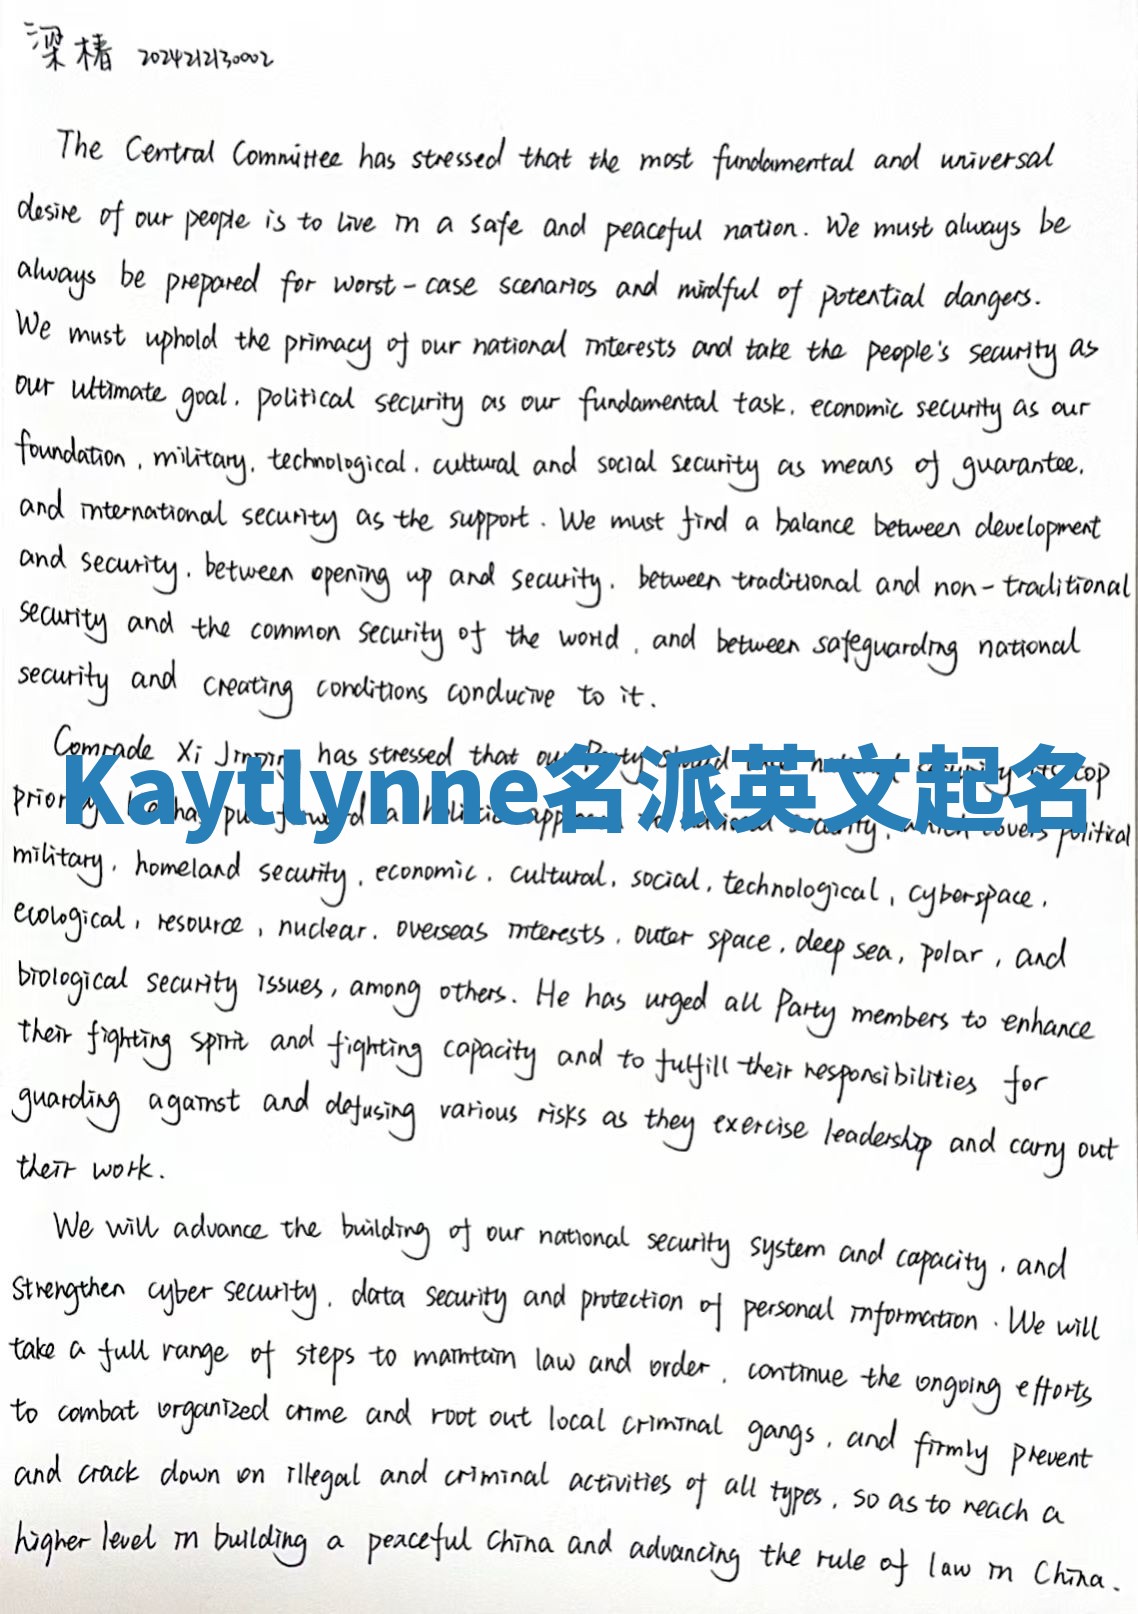 梁椿 2024212130002
The Central Committee has stressed that the most fundamental and universal
desire of our people is to live in a safe and peaceful nation. We must always be
always be prepared for worst-case scenarios and mindful of potential dangers.
We must uphold the primacy of our national interests and take the people's security as
our ultimate goal, political security as our fundamental task, economic security as our
foundation, military, technological, cultural and social security as means of guarantee,
and international security as the support. We must find a balance between development
and security, between opening up and security, between traditional and non-traditional
security and the common security of the world, and between safeguarding national
security and creating conditions conducive to it.
Comrade Xi Jinping has stressed that our Party should national security its top
Kaytlynne名派英文起名
priority has put forward a holistic security, which covers political
military, homeland security, economic, cultural, social, technological, cyberspace,
ecological, resource, nuclear, overseas interests, outer space, deep sea, polar, and
biological security issues, among others. He has urged all Party members to enhance
their fighting spirit and fighting capacity and to fulfill their responsibilities for
guarding against and defusing various risks as they exercise leadership and carry out
their work.
We will advance the building of our national security system and capacity, and
strengthen cyber security, data security and protection of personal information. We will
take a full range of steps to maintain law and order, continue the ongoing efforts
to combat organized crime and root out local criminal gangs, and firmly prevent
and crack down on illegal and criminal activities of all types, so as to reach a
higher level in building a peaceful China and advancing the rule of law in China.